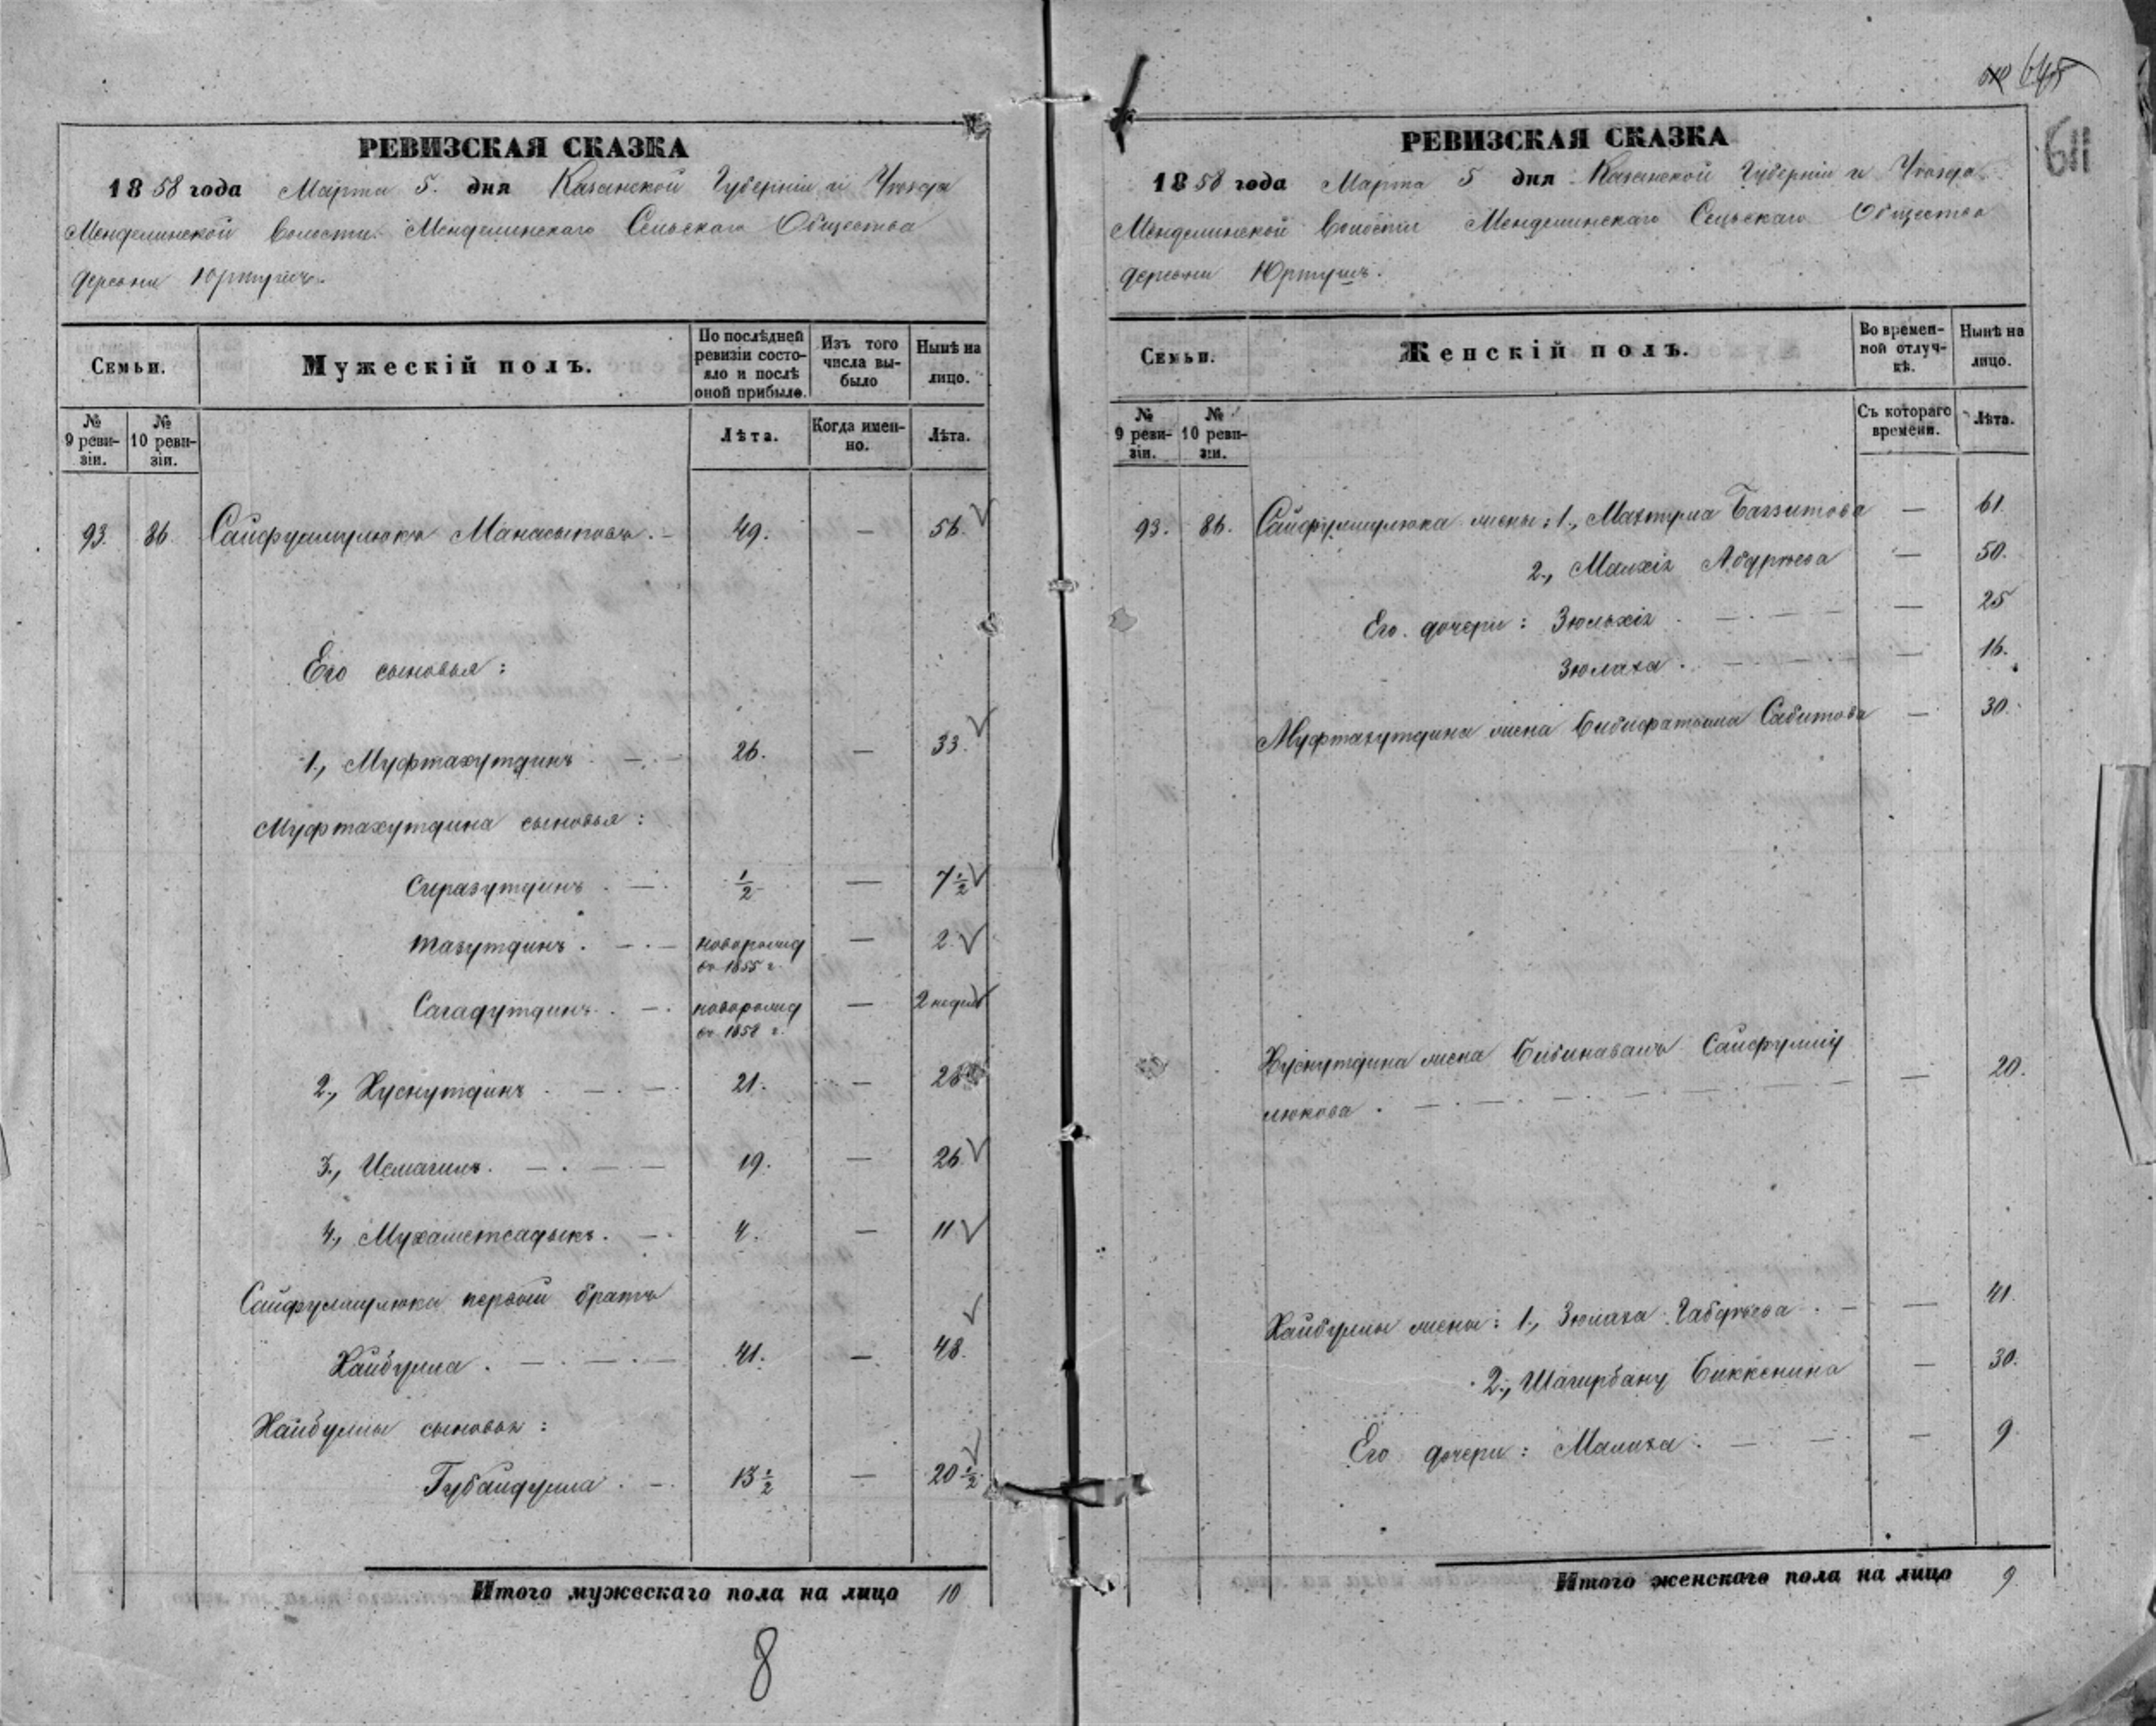 645
611
РЕВИЗСКАЯ СКАЗКА
1858 года Марта 5. дня Казанской Губерніи и Уѣзда
Менделинской Волости Менделинскаго Сельскаго Общества
деревни Юртушъ.
Семьи.
Мужескій полъ.
По послѣдней ревизіи состояло и послѣ оной прибыло.
Изъ того числа выбыло
Нынѣ на лицо.
№ 9 ревизіи.
№ 10 ревизіи.
Лѣта.
Когда именно.
Лѣта.
93. 86. Сайфулмулюкъ Манасыповъ. 49. — 56.
Его сыновья:
1., Муфтахутдинъ 26. — 33.
Муфтахутдина сыновья:
Сиразутдинъ 1/2 — 7 1/2
Тазутдинъ новорожд въ 1855 г. — 2.
Сагадутдинъ новорожд въ 1858 г. — 2 недѣль
2., Хуснутдинъ 21. — 28
3., Исмагилъ. 19. — 26.
4., Мухаметсадыкъ. 4. — 11
Сайфулмулюка первый братъ
Хайбулла. 41. — 48.
Хайбуллы сыновья:
Губайдулла. 13 1/2 — 20 1/2
Итого мужескаго пола на лицо 10
8
РЕВИЗСКАЯ СКАЗКА
1858 года Марта 5 дня Казанской Губерніи и Уѣзда
Менделинской Волости Менделинскаго Сельскаго Общества
деревни Юртушъ.
Семьи.
Женскій полъ.
Во временной отлучкѣ.
Нынѣ на лицо.
№ 9 ревизіи.
№ 10 ревизіи.
Съ котораго времени.
Лѣта.
93. 86. Сайфулмулюка жены: 1., Махтума Багзитова — 61.
2., Малхія Абдрѣева — 50.
Его дочери: Зюльхія — 25
Зюлаха. — 16.
Муфтахутдина жена Бибифатыма Сабитова — 30.
Хуснутдина жена Бибинаваль Сайфулму
люкова. — 20.
Хайбуллы жены: 1., Зюлаха Габдрѣева. — 41.
2., Шагирбану Биккенина — 30.
Его дочери: Малиха. — 9
Итого женскаго пола на лицо 9